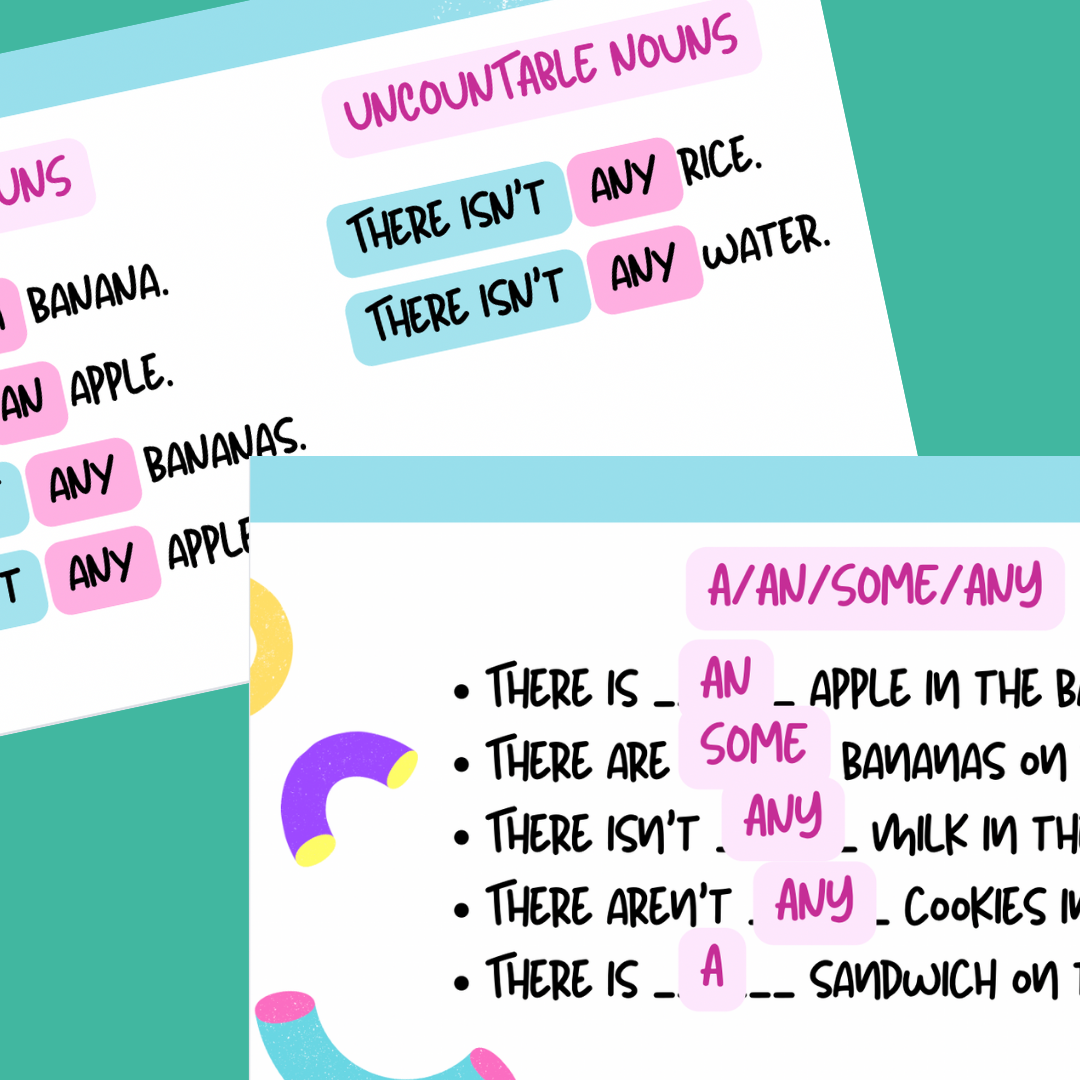 UNCOUNTABLE NOUNS
THERE ISN'T ANY RICE.
THERE ISN'T ANY WATER.
BANANA.
AN APPLE.
ANY BANANAS.
ANY
A/AN/SOME/ANY
• THERE IS _ AN _ APPLE IN THE
• THERE ARE SOME BANANAS ON
• THERE ISN'T _ ANY _ MILK IN
• THERE AREN'T _ ANY _ COOKIES
• THERE IS _ A __ SANDWICH ON